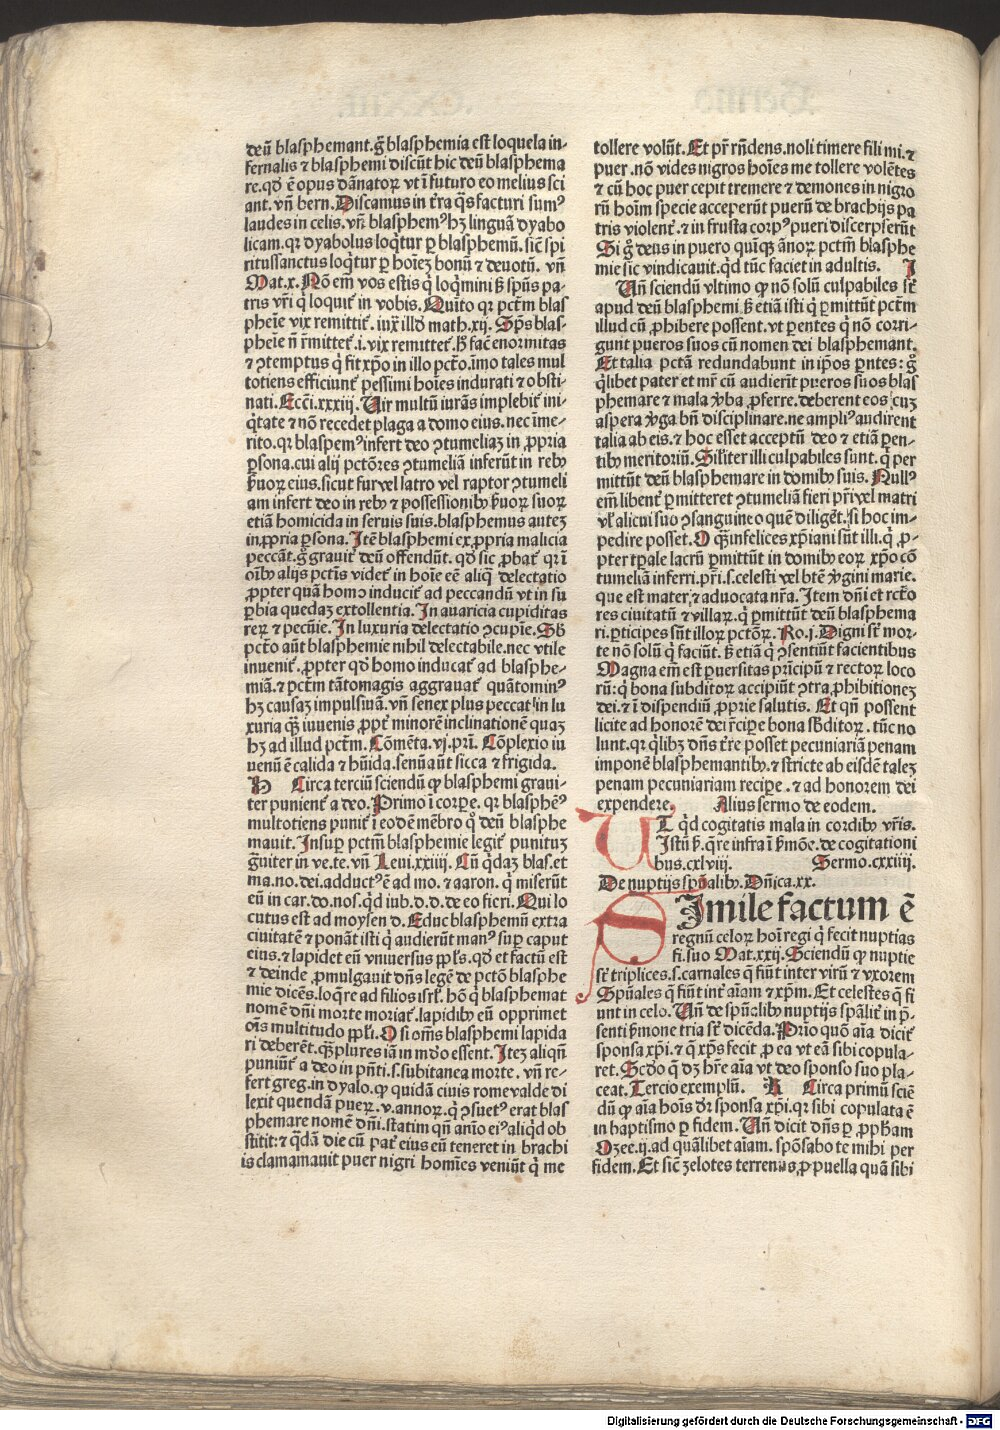 deū blasphemant.g̊ blasphemia est loquela in-
fernalis ⁊ blasphemi discūt hic deū blasphema
re.qd̓ ē opus dānatoꝝ vt ī futuro eo melius sci
ant.vn̄ bern. Discamus in t̄ra q̄s facturi sumꝰ
laudes in celis. vn̄ blasphemꝰ hꝫ linguā dyabo
licam.qꝛ dyabolus loq̄tur ꝑ blasphemū. sic̄ spi
ritussanctus loq̄tur ꝑ hoīeꝫ bonū ⁊ deuotū. vn̄
Mat.x. Nō em̄ vos estis q̄ loq̄mini sꝫ sp̄us pa-
tris vr̄i q̄ loquit̄ in vobis. Quīto qꝛ pctm̄ blas
pheīe vix remittit̄. iux̄ illd̓ math.xij. Sp̄s blas-
pheīe n̄ r̄mittet̄.i.vix remittet̄. hꝰ fac̄ enormitas
⁊ ꝯtemptus q̄ fit xp̄o in illo pctō.īmo tales mul
totiens efficiunt̄ pessimi hoīes indurati ⁊ obsti-
nati. Ecci.xxxiij. Uir multū iurās implebit̄ ini-
q̄tate ⁊ nō recedet plaga a domo eius. nec īme-
rito.qꝛ blaspemꝰ infert deo ꝯtumeliaꝫ in ꝓpria
ꝑsona.cui alij pctōres ꝯtumeliā inferūt in rebꝰ
suoꝝ eius.sicut fur vel latro vel raptor ꝯtumeli
am infert deo in rebꝰ ⁊ possessionibꝰ suoꝝ suoꝝ
etiā homicida in seruis suis.blasphemus auteꝫ
in ꝓpria ꝑsona. Itē blasphemi ex ꝓpria malicia
peccāt.g̊ grauit̄ deū offendūt. qd̓ sic ꝓbat̄ qꝛ ī
oībꝰ alijs pctīs videt̄ in hoīe eē aliq̄ delectatio
ꝓpter quā homo inducit̄ ad peccandū vt in su
ꝑbia quedaꝫ extollentia. In auaricia cupiditas
reꝝ ⁊ pecūie. In luxuria delectatio ꝯcupīe. Sꝫ
pctō aūt blasphemie nihil delectabile.nec vtile
inuenit̄. ꝓpter qd̓ homo inducat̄ ad blasphe-
miā. ⁊ pctm̄ tātomagis aggrauat̄ quātominꝰ
hꝫ causaꝫ impulsiuā. vn̄ senex plus peccat in lu
xuria qꝫ iuuenis. ꝓpt̄ minorē inclinationē quaꝫ
hꝫ ad illud pctm̄. Cōmēta.vj.prī. Cōplexio iu
uenū ē calida ⁊ hūida. senū aūt sicca ⁊ frigida.
H Circa terciū sciendū ꝙ blasphemi graui-
ter punient̄ a deo. Primo ī corꝑe. qꝛ blasphēꝰ
multotiens punit̄ ī eodē mēbro q̊ deū blasphe
mauit. Insuꝑ pctm̄ blasphemie legit̄ punituꝫ
g̊uiter in ve.te.vn̄ Leui.xxiiij. Cū q̄daꝫ blas.et
ma.no.dei.adductꝰ ē ad mo. ⁊ aaron. q̄ miserūt
eū in car.do.nos.qd̓ iub.d.d.de eo fieri. Qui lo
cutus est ad moysen d. Educ blasphemū extra
ciuitatē ⁊ ponāt isti q̄ audierūt manꝰ suꝑ caput
eius. ⁊ lapidet eū vniuersus ppl̓s. qd̓ et factū est
⁊ deinde ꝓmulgauit dn̄s legē de pctō blasphe
mie dicēs.loq̄re ad filios isrl̓. hō q̄ blasphemat
nomē dn̄i morte moriat̄. lapidibꝰ eū opprimet
oīs multitudo ppl̓i. O si om̄s blasphemi lapida
ri deberēt. qꝫplures iā in mūdo essent. Iteꝫ aliqn̄
puniūt̄ a deo in pn̄ti.s.subitanea morte. vn̄ re-
fert greg.in dyalo.ꝙ quidā ciuis rome valde di
lexit quendā pueꝝ.v.annoꝝ.q̄ ꝯsuetꝰ erat blas
phemare nomē dn̄i.statim qn̄ aīo eiꝰ aliqd̓ ob
stitit:⁊ q̄dā die cū pat̄ eius eū teneret in brachi
is clamamauit puer nigri homīes veniūt q̄ me
tollere volūt. Et pr̄ rn̄dens.noli timere fili mi.⁊
puer.nō vides nigros hoīes me tollere volētes
⁊ cū hoc puer cepit tremere ⁊ demones in nigro
rū hoīm specie acceperūt puerū de brachijs pa
tris violent̄.⁊ in frusta corpꝰ pueri discerpserūt
Si g̊ deus in puero quīqꝫ ānoꝝ pctm̄ blasphe
mie sic vindicauit.qd̓ tūc faciet in adultis. I
Un̄ sciendū vltimo ꝙ nō solū culpabiles st̄
apud deū blasphemi.sꝫ etiā isti q̄ ꝑmittūt pctm̄
illud cū ꝓhibere possent.vt ꝑentes q̄ nō corri-
gunt pueros suos cū nomen dei blasphemant.
Et talia pctā redundabunt in ip̄os ꝑntes: g̊
q̄libet pater et mr̄ cū audierūt pueros suos blas
phemare ⁊ mala v̄ba ꝓferre.deberent eos cuꝫ
aspera v̄ga bn̄ disciplinare.ne ampliꝰ audirent
talia ab eis.⁊ hoc esset acceptū deo ⁊ etiā ꝑen-
tibꝰ meritoriū. Sil̓iter illi culpabiles sunt. q̄ ꝑ
mittūt deū blasphemare in domibꝰ suis. Nullꝰ
em̄ libent̄ ꝑmitteret ꝯtumeliā fieri pr̄i vel matri
vl̓ alicui suo ꝯsanguineo quē diliget̄. si hoc im-
pedire posset. O qꝫ infelices xp̄iani sūt illi.q̄ ꝓ-
pter tꝑale lacrū ꝑmittūt in domibꝰ eoꝝ xp̄o cō
tumeliā inferri.pr̄i.s.celesti vel btē v̄gini marie.
que est mater ⁊ aduocata nr̄a. Item dn̄i et rcto
res ciuitatū ⁊ villaꝝ.q̄ ꝑmittūt deū blasphema
ri.ꝑticipes sūt illoꝝ pctōꝝ. Ro.j. Digni st̄ mor-
te nō solū q̄ faciūt.sꝫ etiā q̄ ꝯsentiūt facientibus
Magna em̄ est ꝑuersitas pricipū ⁊ rectoꝝ loco
rū: q̄ bona subditoꝝ accipiūt ꝯtra ꝓhibitioneꝫ
dei. ⁊ ī dispendiū ꝓprie salutis. Et qn̄ possent
licite ad honorē dei r̄ciꝑe bona sb̄ditoꝝ. tūc no
lunt.qꝛ q̄libꝫ dn̄s t̄re posset pecuniariā penam
imponē blasphemantibꝰ.⁊ stricte ab eisdē taleꝫ
penam pecuniariam reciꝑe.⁊ ad honorem dei
expendere. Alius sermo de eodem.
UT qd̓ cogitatis mala in cordibꝰ vr̄is.
Istū sꝫ.q̄re infra ī smōe.de cogitationi
bus.cxlviij. Sermo.cxxiiij.
De nuptijs spūalibꝰ. Dn̄ica.xx.
SImile factum ē
regnū celoꝝ hoī regi q̄ fecit nuptias
fi.suo Mat.xxij. Sciendū ꝙ nuptie
st̄ triplices.s.carnales q̄ fiūt inter virū ⁊ vxorem
Spūales q̄ fiūt int̄ aīam ⁊ xp̄m. Et celestes q̄ fi
unt in celo. Un̄ de spūalibꝰ nuptijs spālit̄ in p̄-
senti sermone tria st̄ dicēda. Prīo quō aīa dicit̄
sponsa xp̄i.⁊ q̄ xp̄s fecit ꝓ ea vt eā sibi copula-
ret. Scd̓o q̄ dꝫ hr̄e aīa vt deo sponso suo pla-
ceat. Tercio exemplū. K Circa primū sciē
dū ꝙ aīa hoīs dr̄ sponsa xp̄i.qꝛ sibi copulata ē
in baptismo ꝑ fidem. Un̄ dicit dn̄s ꝑ ꝓpham
Ozee.ij.ad quālibet aīam. spōsabo te mihi per
fidem. Et sic̄ zelotes terrenus ꝓ puella quā sibi
Digitalisierung gefördert durch die Deutsche Forschungsgemeinschaft - DFG